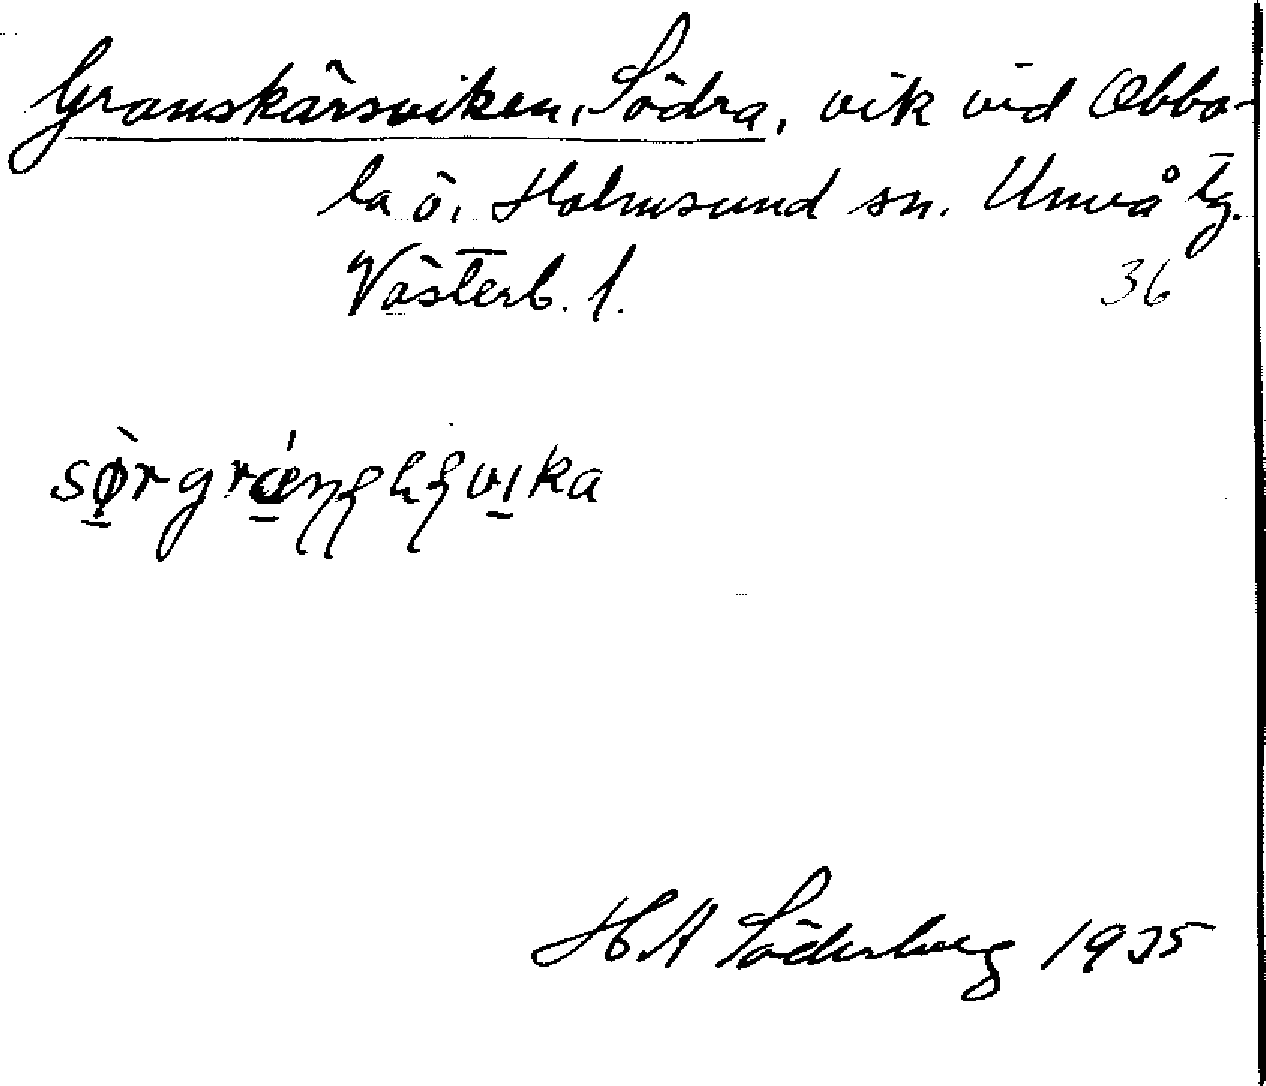 Granskärsviken, Södra, vik vid Obbo-
la ö, Holmsund sn. Umeå tg.
Västerb. l. 36
H A Söderberg 1935